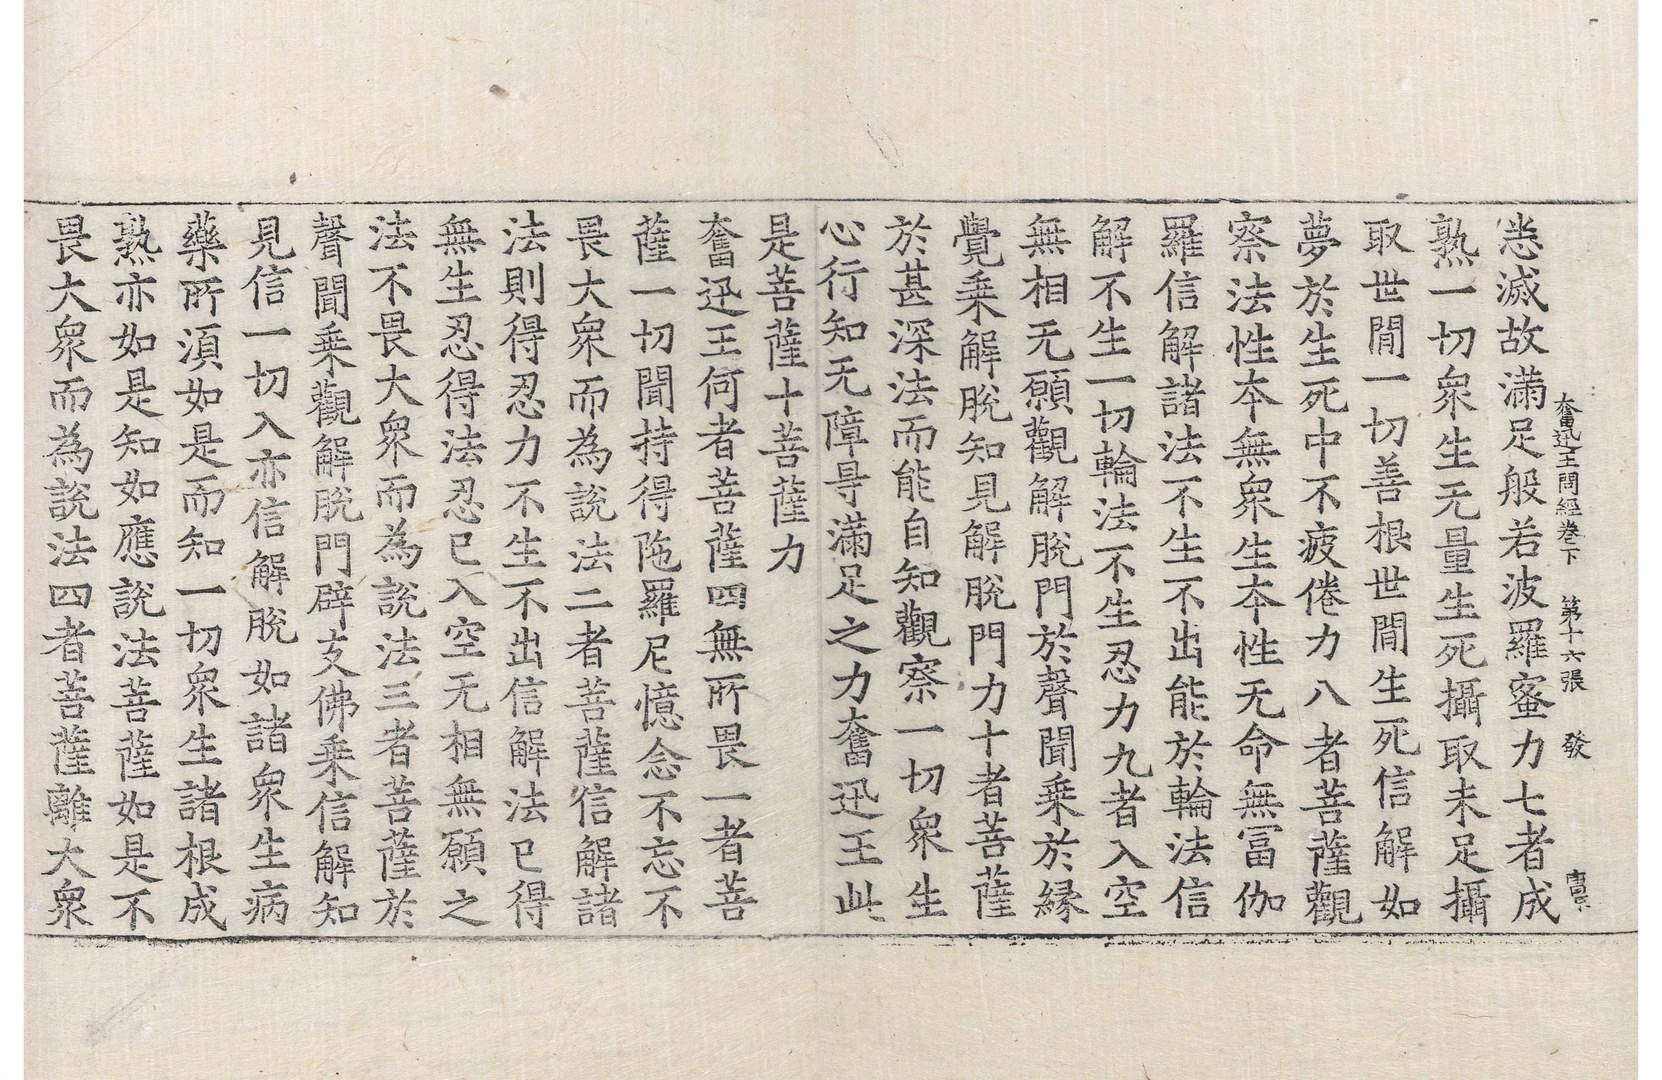 奮迅王問經卷下 第十六張 發
悉滅故滿足般若波羅蜜力七者成
熟一切衆生无量生死攝取未足攝
取世間一切善根世間生死信解如
夢於生死中不疲倦力八者菩薩觀
察法性本無衆生本性无命無冨伽
羅信解諸法不生不出能於輪法信
解不生一切輪法不生忍力九者入空
無相无願觀解脫門於聲聞乗於縁
覺乗解脫知見解脫門力十者菩薩
於甚深法而能自知觀察一切衆生
心行知无障㝵滿足之力奮迅王此
是菩薩十菩薩力
奮迅王何者菩薩四無所畏一者菩
薩一切聞持得陁羅尼憶念不忘不
畏大衆而為說法二者菩薩信解諸
法則得忍力不生不出信解法已得
無生忍得法忍已入空无相無願之
法不畏大衆而為說法三者菩薩於
聲聞乗觀解脫門辟支佛乗信解知
見信一切入亦信解脫如諸衆生病
藥所湏如是而知一切衆生諸根成
熟亦如是知如應說法菩薩如是不
畏大衆而為說法四者菩薩離大衆